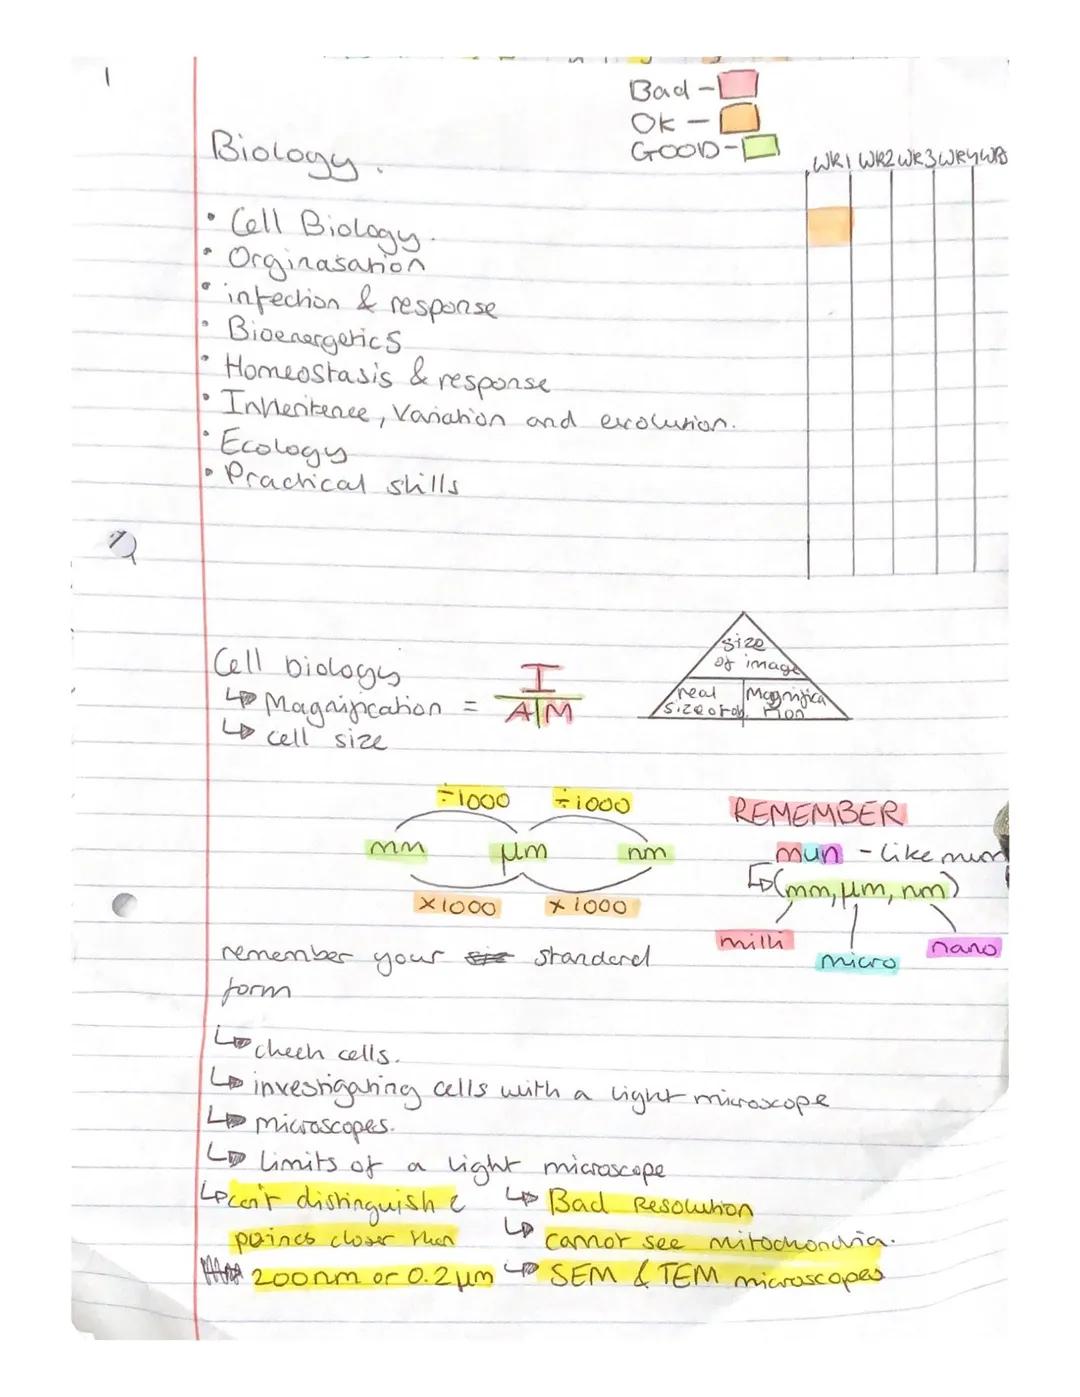 1
Bad -
OK -
GOOD -
Biology.
WR1 WR2 WR3 WR4 WR5
• Cell Biology.
• Orginasation
• infection & response
• Bioenergetics
• Homeostasis & response
• Inheritence, Variation and evolution.
• Ecology
• Practical skills
Cell biology
↳ Magnification = I
A|M
↳ cell size
size
of image
real
size of ob.
Magnifica
tion
÷1000 ÷1000
mm μm nm
×1000 ×1000
REMEMBER
mun - like mum
↳(mm, μm, nm)
milli
micro
nano
remember your standerd
form
↳ cheek cells.
↳ investigating cells with a light microscope
↳ microscopes.
↳ limits of a light microscope
↳ can't distinguish 2
points closer than
200nm or 0.2μm
↳ Bad Resolution
↳ cannot see mitochondria.
↳ SEM & TEM microscopes